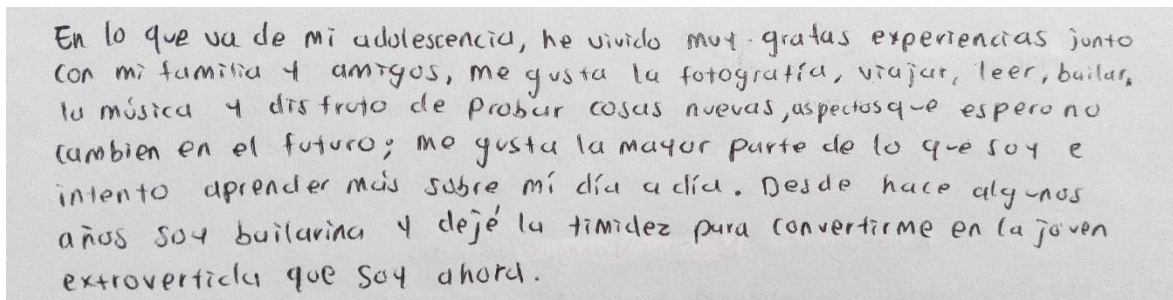 En lo que va de mi adolescencia, he vivido muy gratas experiencias junto
con mi familia y amigos, me gusta la fotografía, viajar, leer, bailar,
la música y disfruto de probar cosas nuevas, aspectos que espero no
cambien en el futuro; me gusta la mayor parte de lo que soy e
intento aprender más sobre mí día a día. Desde hace algunos
años soy bailarina y dejé la timidez para convertirme en la joven
extrovertida que soy ahora.